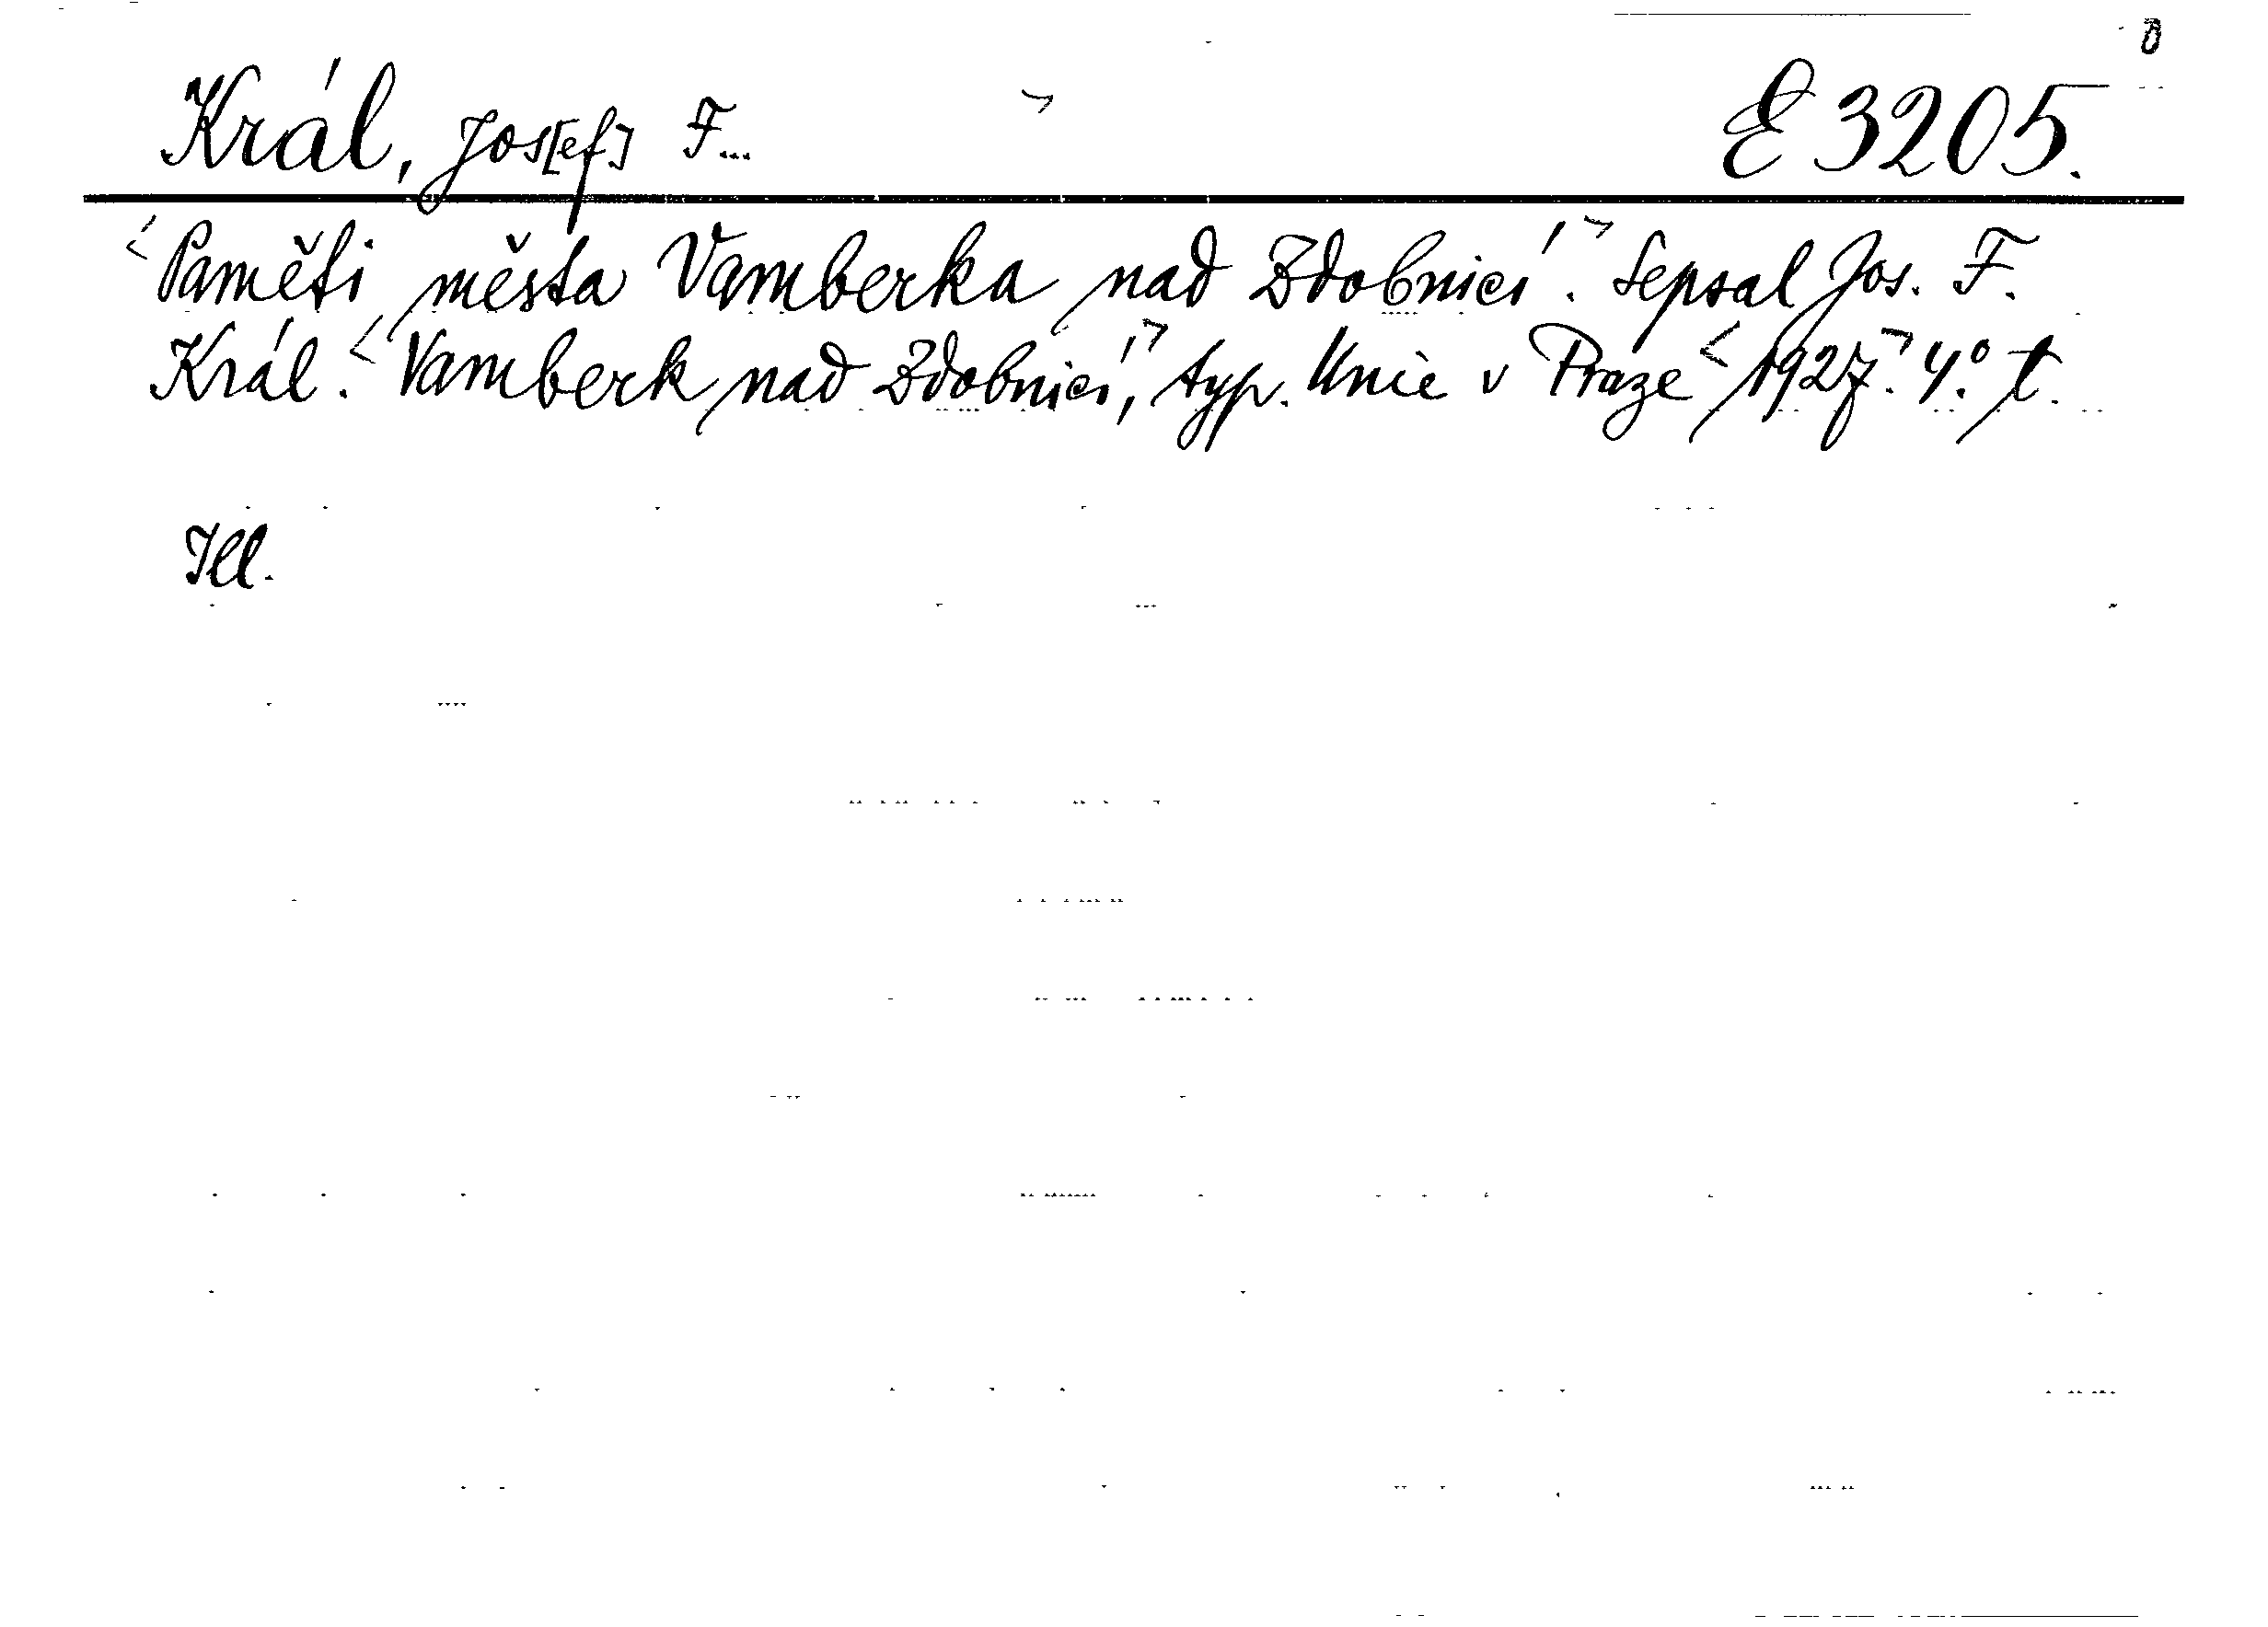 Král, Jos[ef] F... E 3205.
Paměti města Vamberka nad Zdobnicí. Sepsal Jos. F.
Král. Vamberk nad Zdobnicí, typ. Unie v Praze 1927. 4.° t.
Ill.